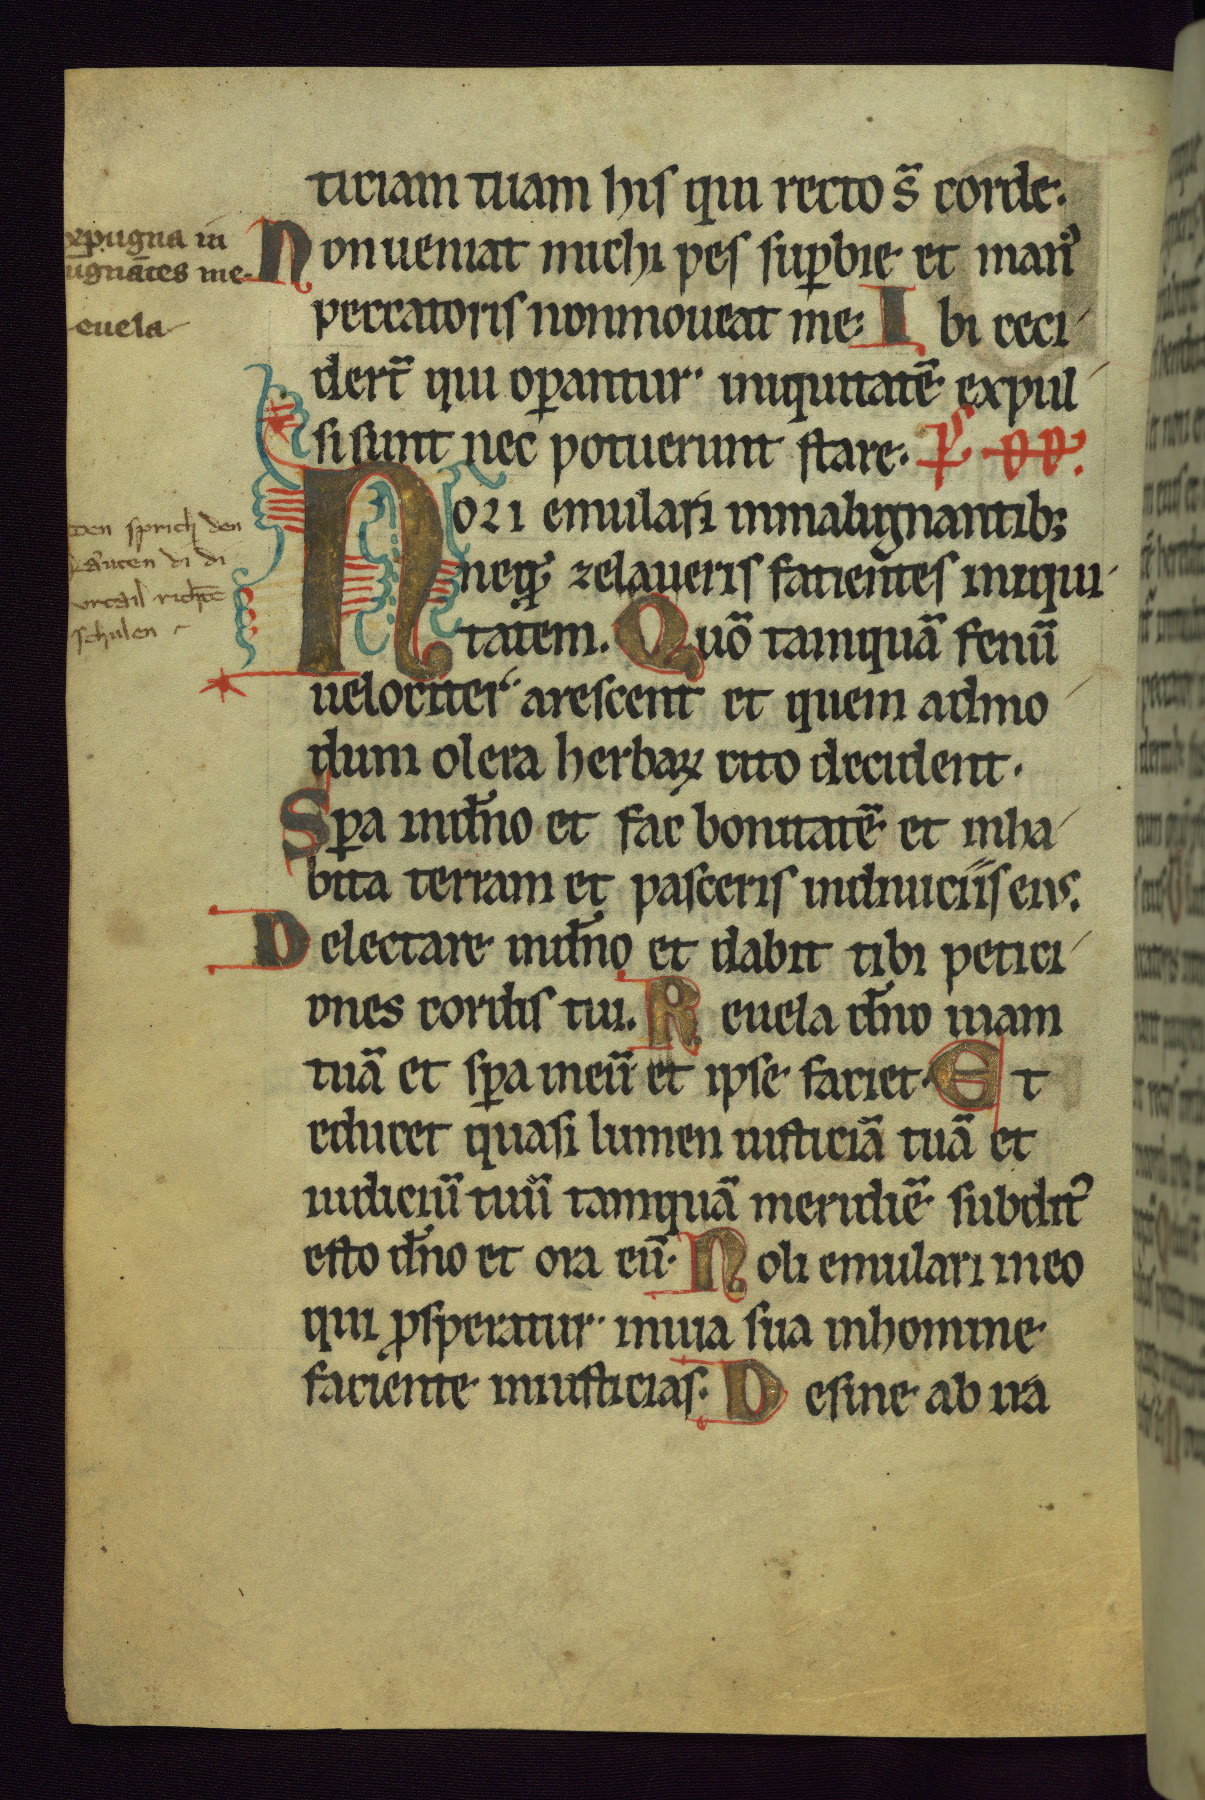 ticiam tuam his qui recto s̄ corde.
Non ueniat michi pes suꝑbie et manꝰ
peccatoris nonmoueat me: Ibi ceci
dert̄ qui oꝑantur iniquitatē expul
si sunt nec potuerunt stare. Pſ DD.
Noli emulari inmalignantib;
neqꝫ zelaueris facientes iniqui
tatem. Quō tamquā fenū
uelociter arescent et quem admo
dum olera herbaꝝ cito decident.
Sꝑa indn̄o et fac bonitatē et inha
bita terram et pasceris indiuiciis eius.
Delectare indn̄o et dabit tibi petici
ones cordis tui. Reuela dn̄o uiam
tuā et sꝑa ineū et ipse faciet. Et
educet quasi lumen iusticiā tuā et
iudiciū tuū tamquā meridiē subdit᷒
esto dn̄o et ora eū. Noli emulari ineo
qui ꝓsperatur inuia sua inhomine
faciente iniusticias. Desine ab ira
xpugna in
ugnātes me.
euela
den sprich den
di di
urtail richtē
schulen